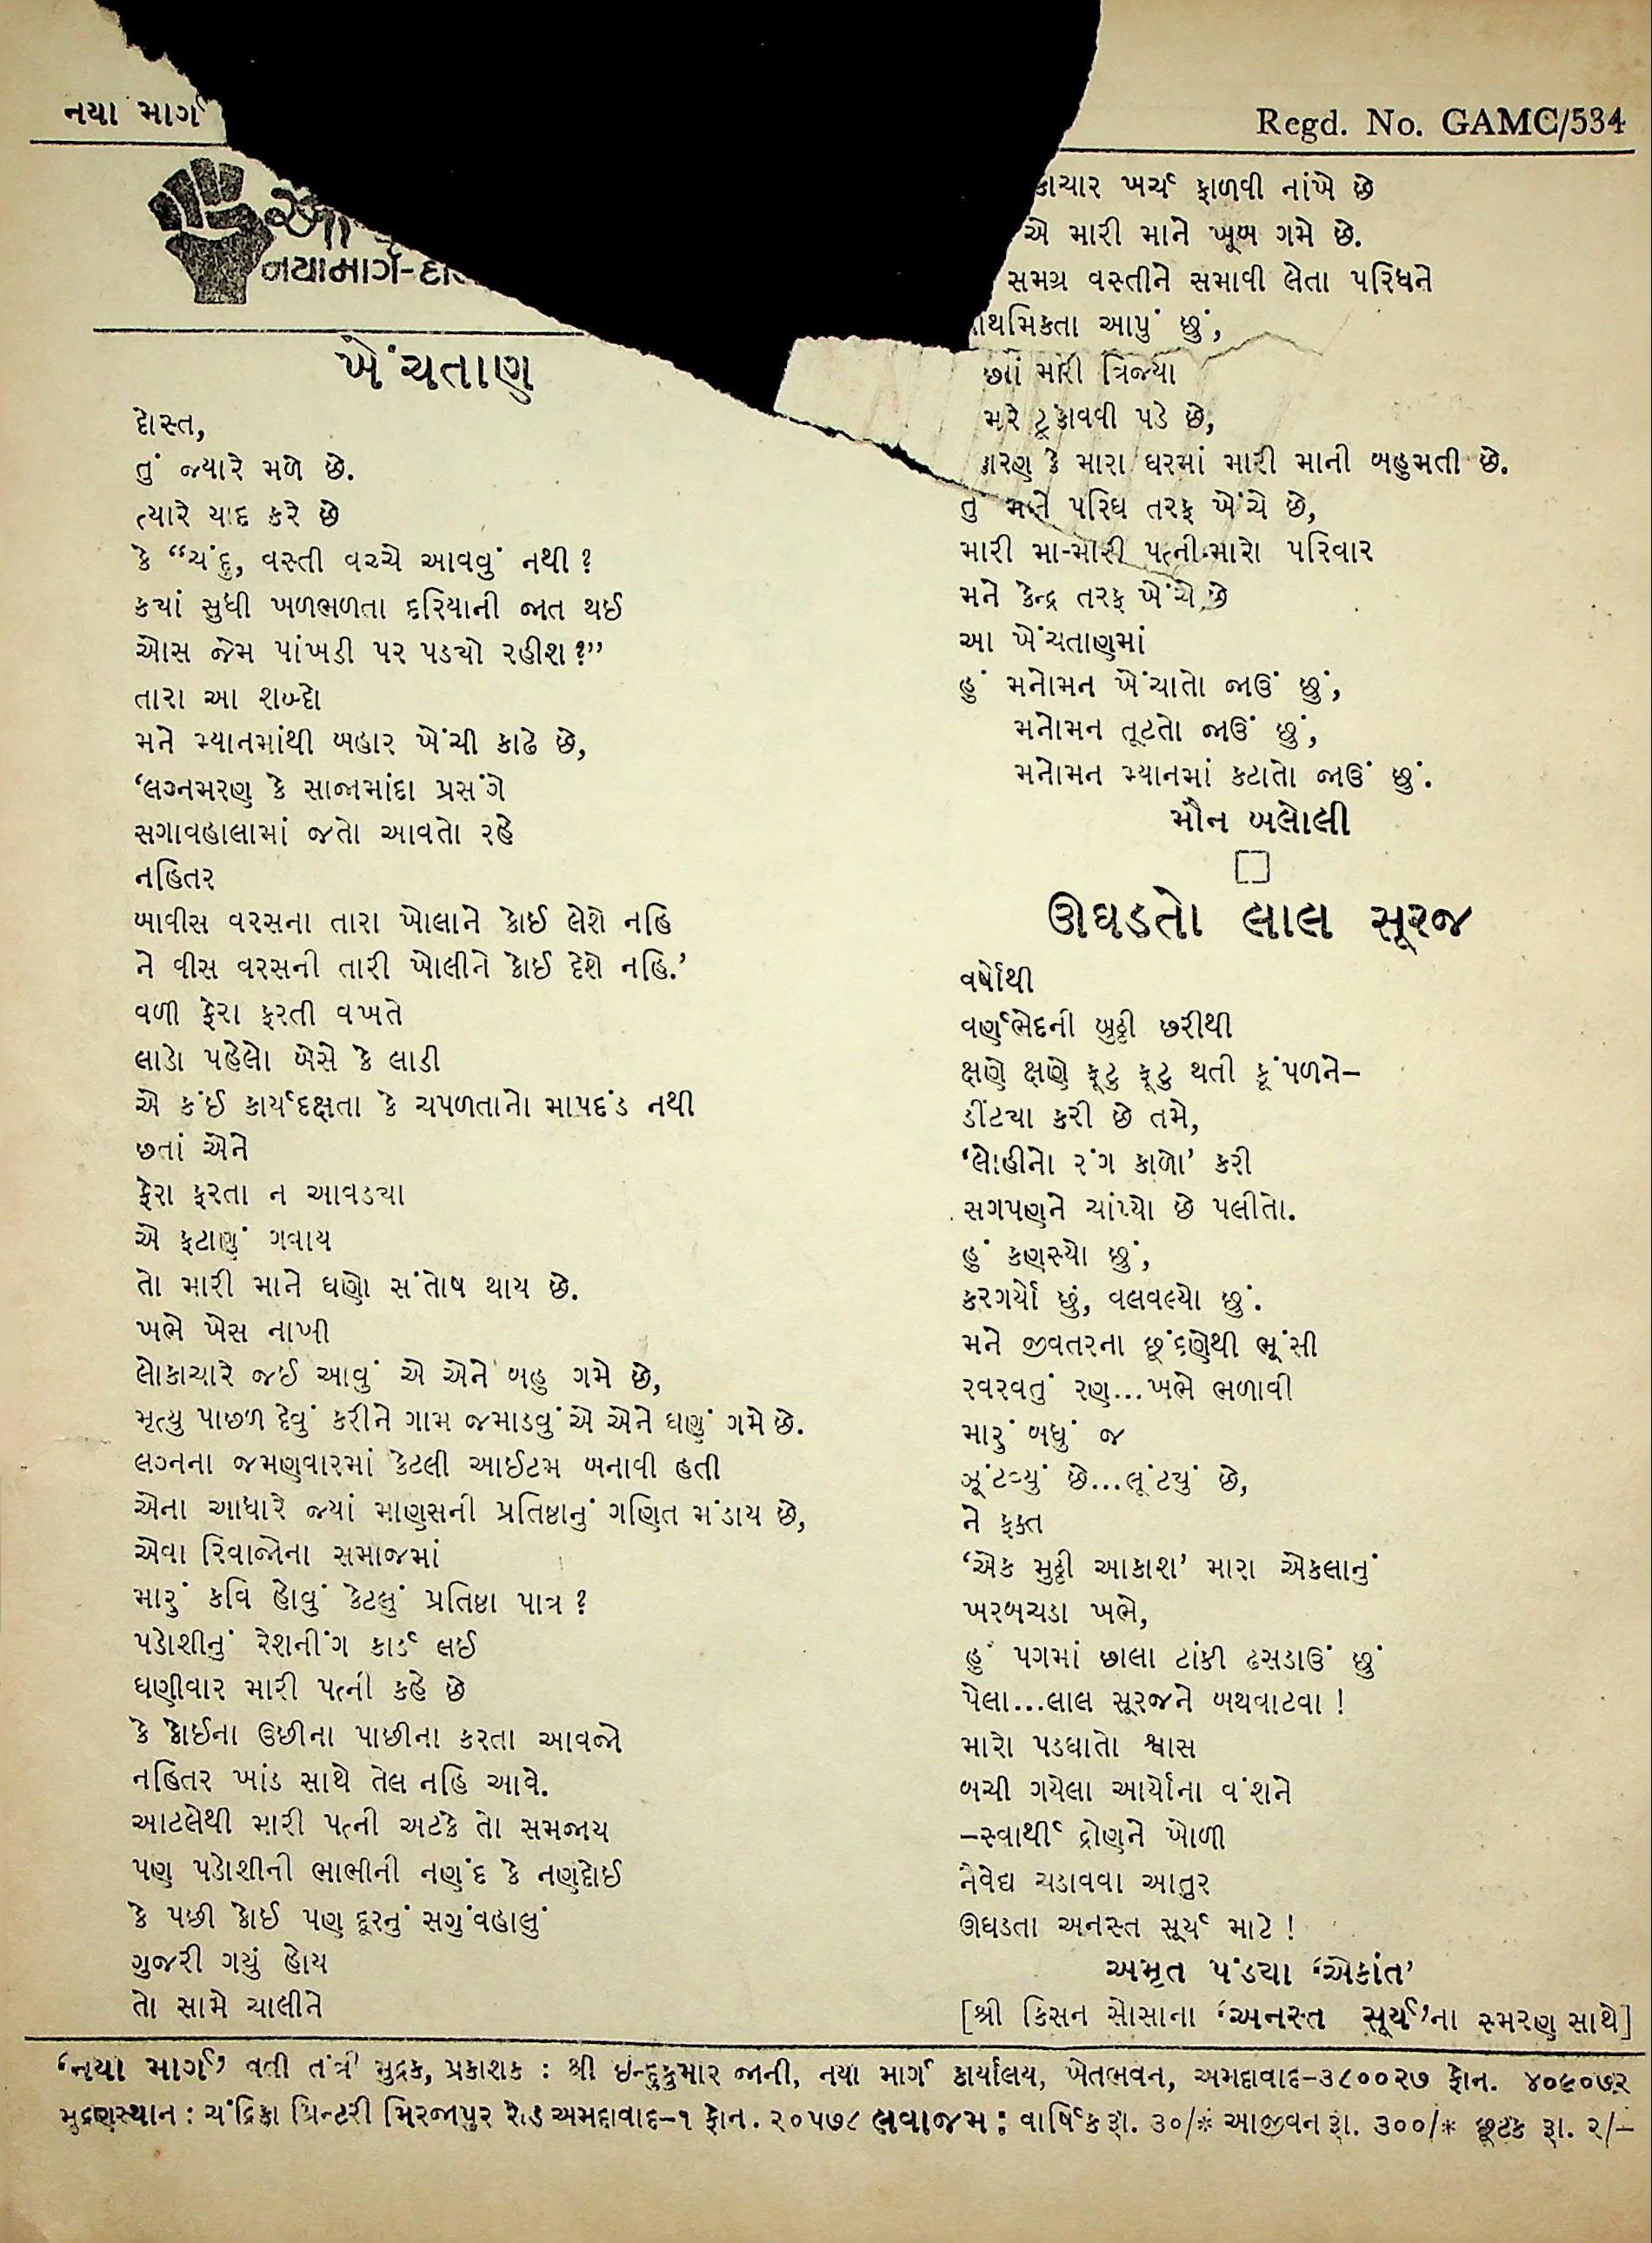 નયા માર્ગ
Regd. No. GAMC/534
નયામાર્ગ-
ખેંચતાણ
દોસ્ત,
તું જ્યારે મળે છે.
ત્યારે યાદ કરે છે
કે “ચંદુ, વસ્તી વચ્ચે આવવું નથી ?
કયાં સુધી ખળભળતા દરિયાની જાત થઈ
ઓસ જેમ પાંખડી પર પડ્યો રહીશ ?”
તારા આ શબ્દો
મને મ્યાનમાંથી બહાર ખેંચી કાઢે છે,
‘લગ્નમરણ કે સાજામાંદા પ્રસંગે
સગાવહાલામાં જતો આવતો રહે
નહિતર
બાવીસ વરસના તારા ખોલાને કોઈ લેશે નહિ
ને વીસ વરસની તારી ખોલીને કોઈ દેશે નહિ.’
વળી ફેરા ફરતી વખતે
લાડો પહેલો બેસે કે લાડી
એ કંઈ કાર્યદક્ષતા કે ચપળતાનો માપદંડ નથી
છતાં એને
ફેરા ફરતા ન આવડ્યા
એ ફટાણું ગવાય
તો મારી માને ઘણો સંતોષ થાય છે.
ખભે ખેસ નાખી
લોકાચારે જઈ આવું એ એને બહુ ગમે છે,
મૃત્યુ પાછળ દેવું કરીને ગામ જમાડવું એ એને ઘણું ગમે છે.
લગ્નના જમણવારમાં કેટલી આઈટમ બનાવી હતી
એના આધારે જ્યાં માણસની પ્રતિષ્ઠાનું ગણિત મંડાય છે,
એવા રિવાજોના સમાજમાં
મારું કવિ હોવું કેટલું પ્રતિષ્ઠા પાત્ર ?
પડોશીનું રેશનીંગ કાર્ડ લઈ
ઘણીવાર મારી પત્ની કહે છે
કે કોઈના ઉછીના પાછીના કરતા આવજો
નહિતર ખાંડ સાથે તેલ નહિ આવે.
આટલેથી મારી પત્ની અટકે તો સમજાય
પણ પડોશીની ભાભીની નણંદ કે નણદોઈ
કે પછી કોઈ પણ દૂરનું સગુંવહાલું
ગુજરી ગયું હોય
તો સામે ચાલીને
કાચાર ખર્ચ ફાળવી નાંખે છે
એ મારી માને ખૂબ ગમે છે.
સમગ્ર વસ્તીને સમાવી લેતા પરિઘને
ાથમિકતા આપું છું,
મારી ત્રિજ્યા
મરે ટૂંકાવવી પડે છે,
ારણ કે મારા ઘરમાં મારી માની બહુમતી છે.
તું મને પરિઘ તરફ ખેંચે છે,
મારી મા-મારી પત્ની-મારો પરિવાર
મને કેન્દ્ર તરફ ખેંચે છે
આ ખેંચતાણમાં
હું મનોમન ખેંચાતો જાઉં છું,
મનોમન તૂટતો જાઉં છું,
મનોમન મ્યાનમાં કટાતો જાઉં છું.
મૌન બલોલી
ઊઘડતો લાલ સૂરજ
વર્ષોથી
વર્ણભેદની બુઠ્ઠી છરીથી
ક્ષણે ક્ષણે ફૂટુ ફૂટુ થતી કૂંપળને–
ડીંટ્યા કરી છે તમે,
‘લોહીનો રંગ કાળો’ કરી
સગપણને ચાંપ્યો છે પલીતો.
હું કણસ્યો છું,
કરગર્યો છું, વલવલ્યો છું.
મને જીવતરના છૂંદણેથી ભૂંસી
રવરવતું રણ...ખભે ભળાવી
મારું બધું જ
ઝૂંટવ્યું છે...લૂંટયું છે,
ને ફક્ત
‘એક મુઠ્ઠી આકાશ’ મારા એકલાનું
ખરબચડા ખભે,
હું પગમાં છાલા ટાંકી ઢસડાઉં છું
પેલા...લાલ સૂરજને બથવાટવા !
મારો પડઘાતો શ્વાસ
બચી ગયેલા આર્યોના વંશને
–સ્વાર્થી દ્રોણને ખોળી
નૈવેદ્ય ચડાવવા આતુર
ઊઘડતા અનસ્ત સૂર્ય માટે !
અમૃત પંડયા ‘એકાંત’
[શ્રી કિસન સોસાના ‘અનસ્ત સૂર્ય’ના સ્મરણ સાથે]
‘નયા માર્ગ’ વતી તંત્રી મુદ્રક, પ્રકાશક : શ્રી ઇન્દુકુમાર જાની, નયા માર્ગ કાર્યાલય, ખેતભવન, અમદાવાદ–૩૮૦૦૨૭ ફોન. ૪૦૯૦૭૨
મુદ્રણસ્થાન : ચંદ્રિકા પ્રિન્ટરી મિરજાપુર રોડ અમદાવાદ–૧ ફોન. ૨૦૫૭૮ લવાજમ : વાર્ષિક રૂા. ૩૦/* આજીવન રૂા. ૩૦૦/* છૂટક રૂા. ૨/–